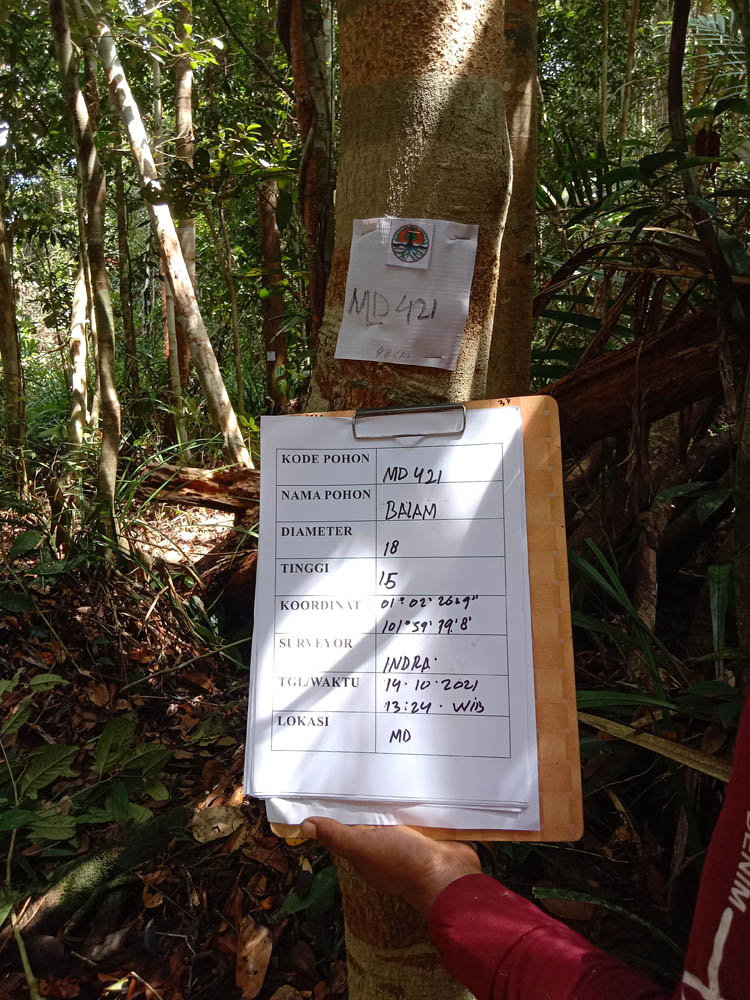 MD 421
48 cm
KODE POHON MD 421
NAMA POHON BALAM
DIAMETER 18
TINGGI 15
KOORDINAT 01° 02' 26.9"
101° 59' 79.8'
SURVEYOR INDRA.
TGL/WAKTU 14.10.2021
13:24. WIB
LOKASI MD
DENIM